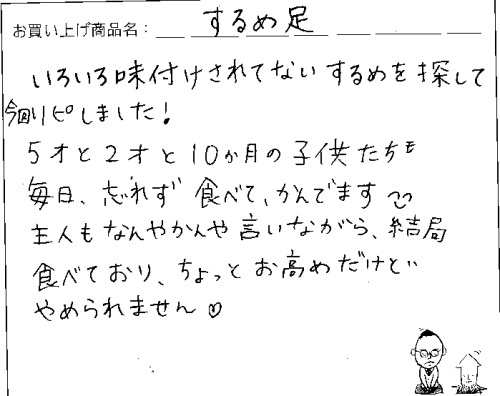 お買い上げ商品名： するめ足
いろいろ味付けされてないするめを探して
今回リピしました！
5才と2才と10か月の子供たちも
毎日、忘れず食べて、かんでます
主人もなんやかんや言いながら、結局
食べており、ちょっとお高めだけど…
やめられません♡